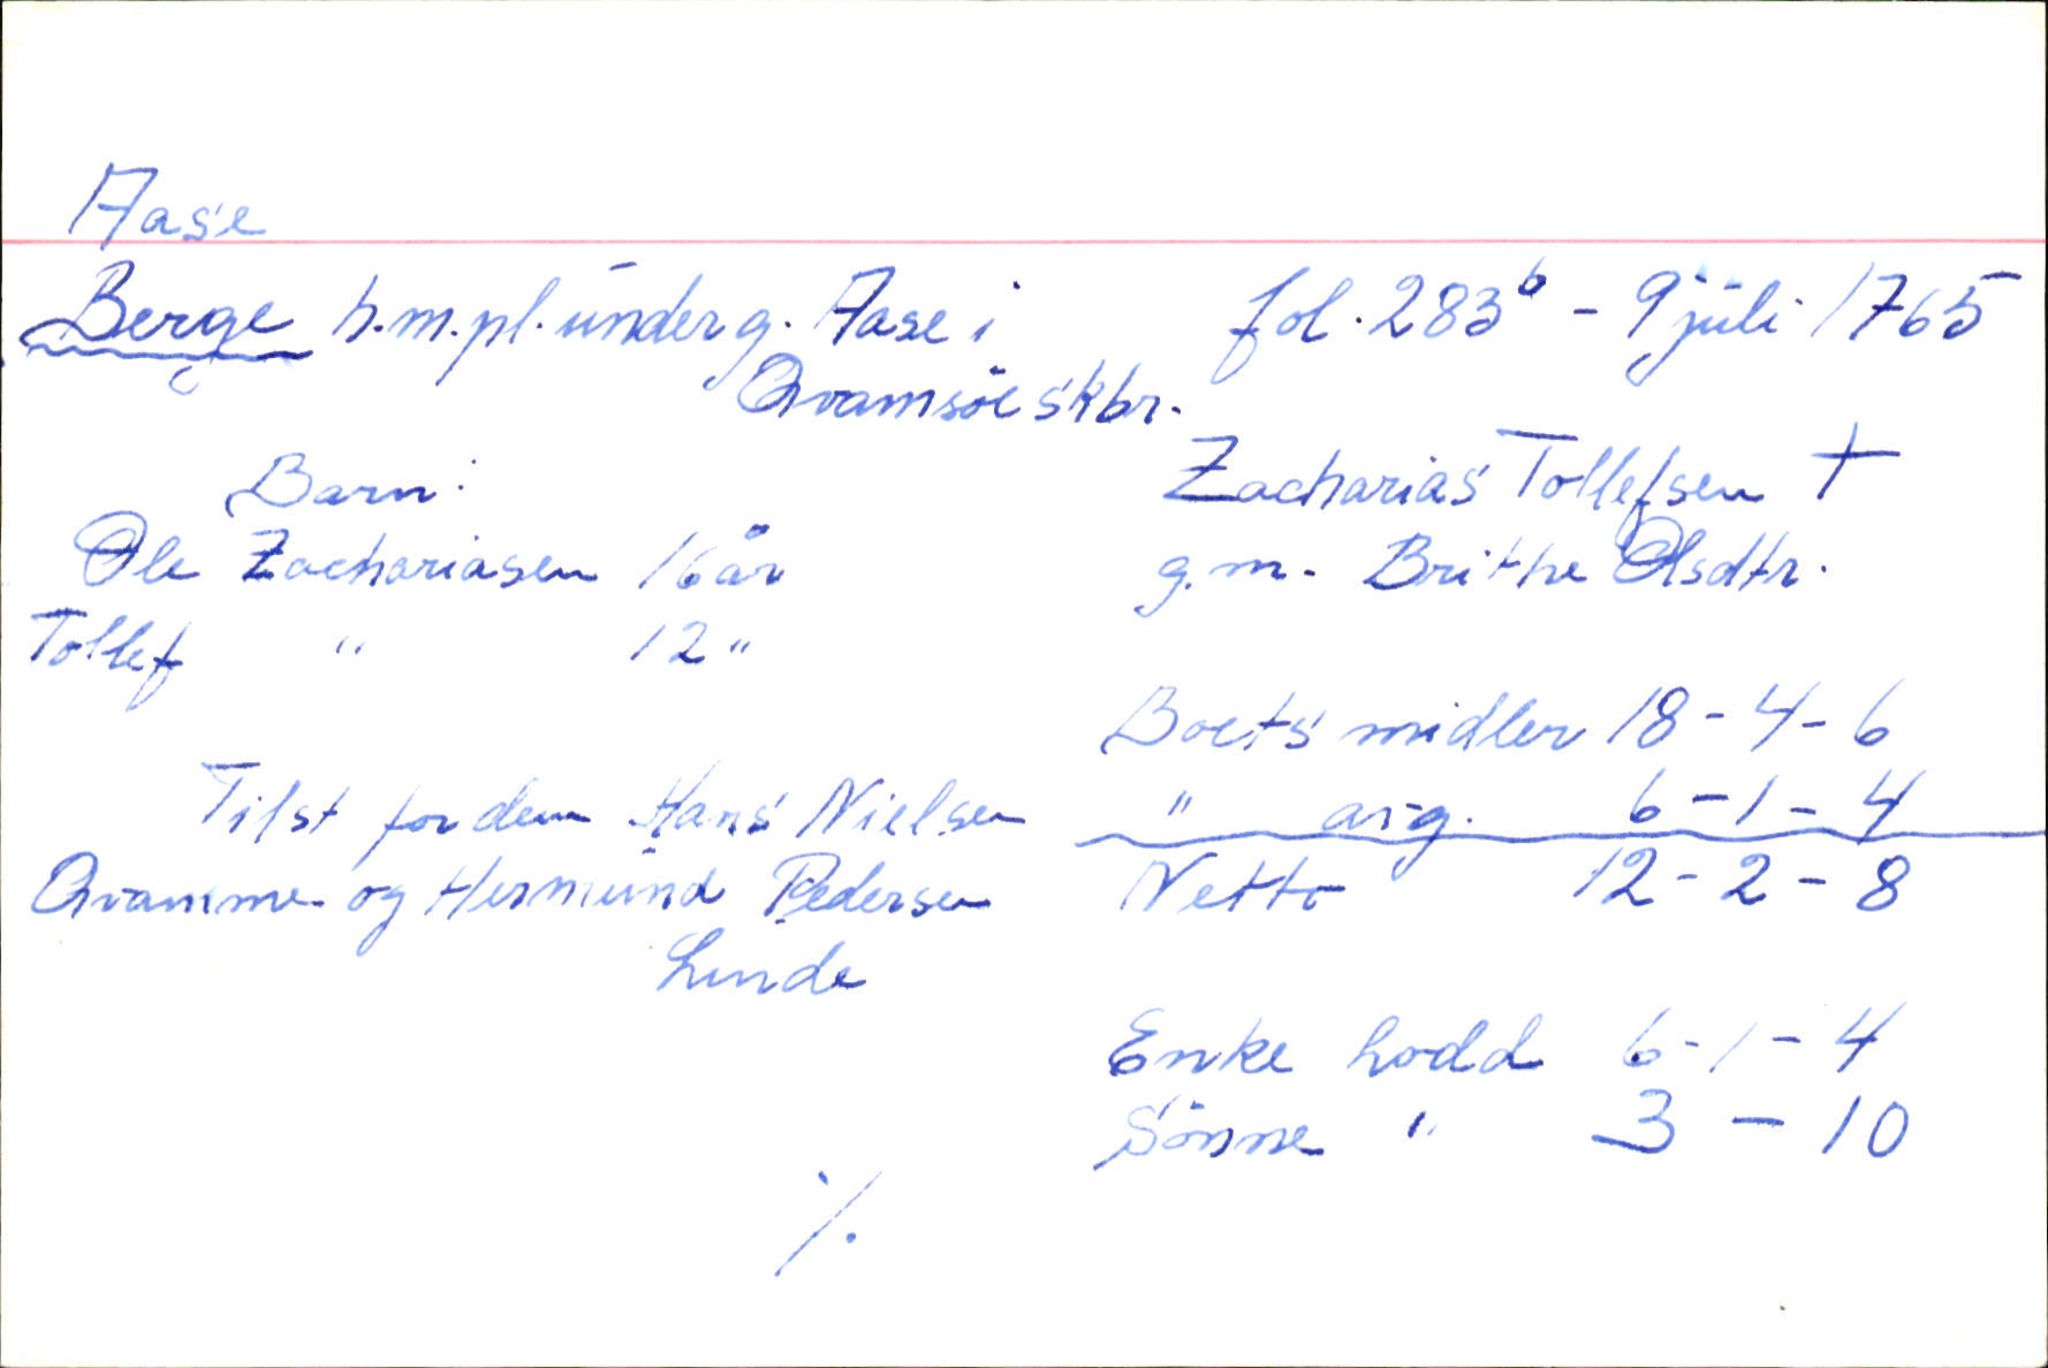 Aase
Berge h.m.pl. under g. Aase i
Qvamsöe skbr.
fol. 283b - 9 juli 1765
Barn:
Ole Zachariasen 16 år
Tollef " 12 "
Tilst for dem Hans Nielsen
Qvamme og Hermund Pedersen
Linde
Zacharias Tollefsen †
g.m. Brithe Olsdtr.
Boets midler 18-4-6
" arg. 6-1-4
Netto 12-2-8
Enke lodd 6-1-4
Sönne " 3 - 10
·/.